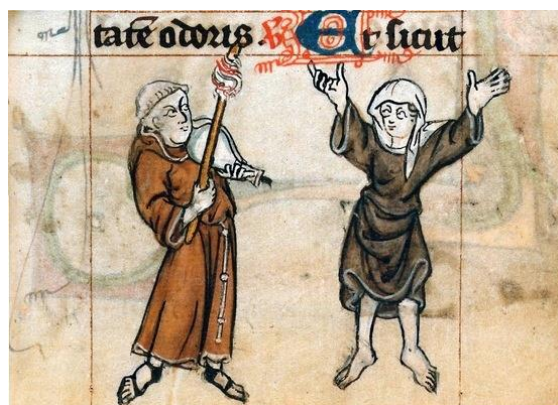 tatē odoris ℣ Et sicut